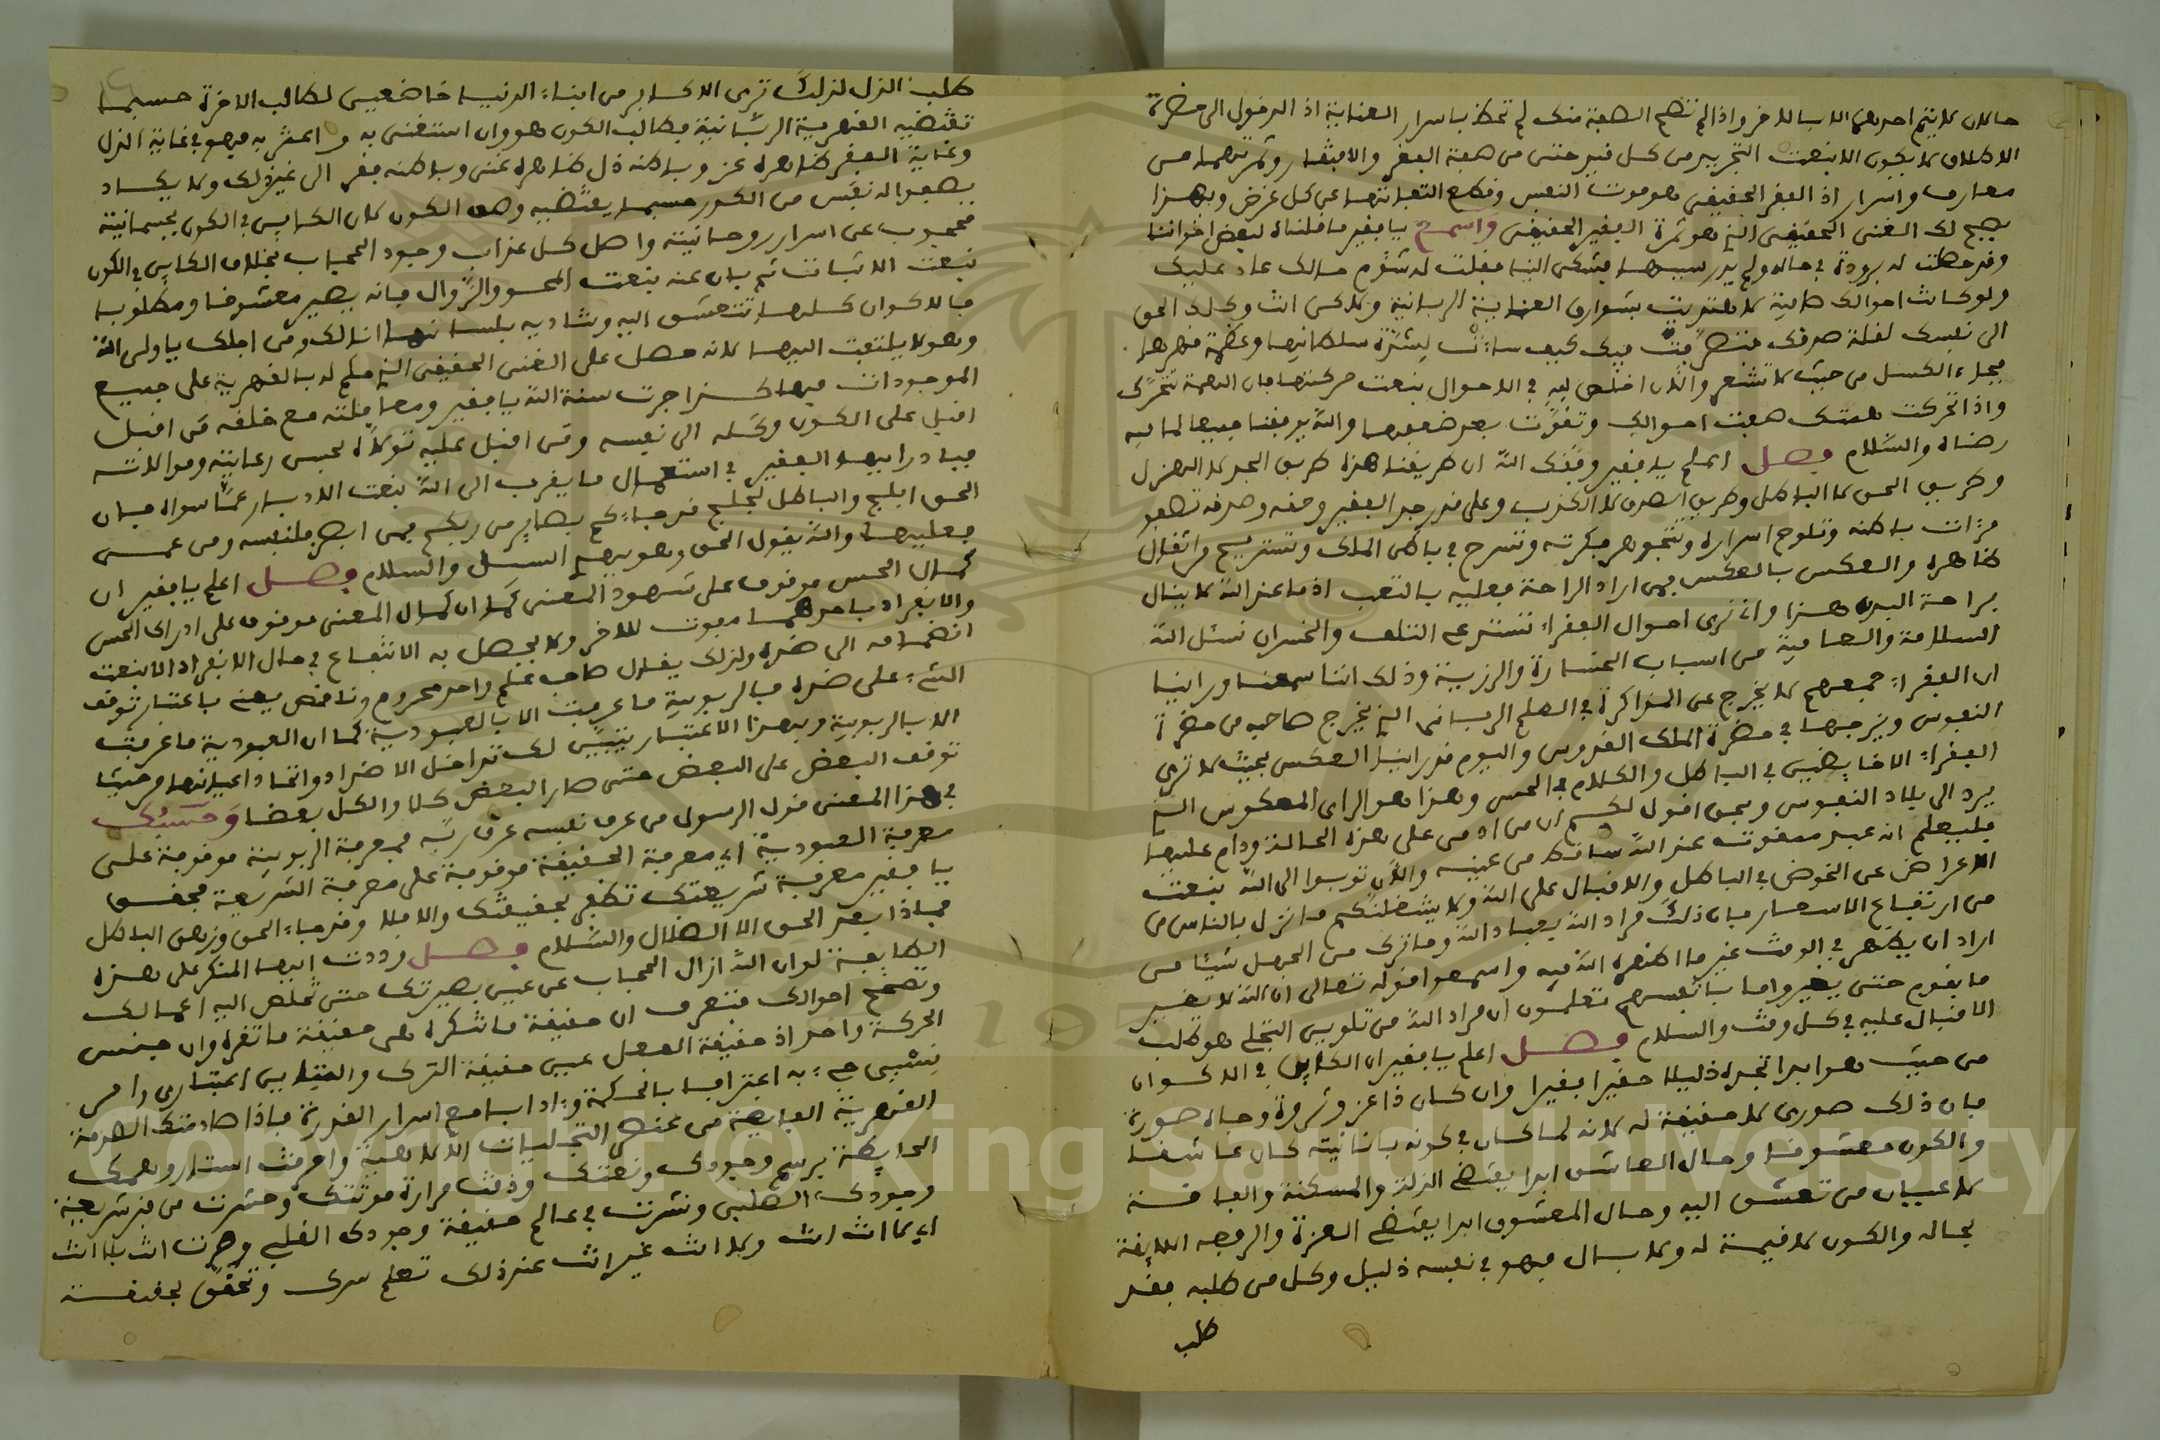 حالان لا يتم احدهما الا بالاخر واذا لم تنهج الهمة منك لم تحظ باسرار العناية اذ الدخول الى حضرة
الاطلاق لا يكون الا بنعت التجريد من كل قيد حتى من همة الفقر والافتقار وثمرتهما من
معارف واسرار اذ الفقر الحقيقي هو موت النفس وقطع التفاتتها عن كل غرض وبهذا
يصح لك الغنى الحقيقي الذي هو ثمرة الفقر الحقيقي واسمع يا فقير ما قلناه لبعض اخواننا
وقد حصلت له برودة في حاله ولم يدر سببها فشكى الينا فقلت له شؤم حالك عاد عليك
ولو كانت احوالك صافية لاهتديت بشوارق العناية الربانية ولاكن انت وكلك الحق
الى نفسك لقلة صدقك
فجاء الكسل من حيث لا تشعر والآن اخلص لله في الاحوال بنعت حركتها فان الهمة تتحرك
واذا تحركت همتك صفت احوالك وتقوت بعد ضعفها والله يوفقنا جميعا لما فيه
رضاه والسلام فصل اعلم يا فقير وفقك الله ان طريقنا هذه طريق الجد لا الهزل
وطريق الحق لا الباطل وطريق الصدق لا الكذب وعلى قدر جد الفقير وحقه وصدقه تصفو
مرءات باطنه وتلوح اسراره وتتجوهر فكرته وتسرح في باطن الملك وتستريح من اثقال
ظاهره والعكس بالعكس فمن اراد الراحة فعليه بالتعب اذ ما عند الله لا ينال
براحة البدن هذا وانا نرى احوال الفقراء تستدعي التلف والخسران نسئل الله
السلامة والعافية من اسباب الخسارة والرزية وذلك اننا سمعنا وراينا
ان الفقراء جميعهم لا يخرج عن المذاكرة في العلم الرباني الذي يخرج صاحبه من حضرة
النفوس ويزج بها في حضرة الملك القدوس واليوم قد راينا العكس بحيث لا ترى
الفقراء الا خايضين في الباطل والكلام في الحس وهذا هو الراى المعكوس الذي
يرد الى بلاد النفوس وبحق اقول لكم ان من ادمن على هذه الحالة ودام عليها
فليعلم انه عبد ممقوت عند الله ساقط من عينه والآن توبوا الى الله بنعت
الاعراض عن الخوض في الباطل والاقبال على الله ولا يشغلنكم ما نزل بالناس من
من ارتفاع الاسعار فان ذلك مراد الله بعباد الله وما ترك من الجهل شيئا من
اراد ان يظهر في الوقت غير ما اظهره الله فيه واسمعوا قوله تعالى ان الله لا يغير
ما بقوم حتى يغيروا ما بانفسهم تعلمون ان مراد الله من تلوين التجلي هو طلب
الاقبال عليه في كل وقت والسلام فصل اعلم يا فقير ان الكاين في الاكوان
من حيث هو ابدا تجده ذليلا حقيرا فقيرا وان كان ذا عز وثروة وجاه صورة
فان ذلك صورى لا حقيقة له لانه لما كان في كونه بانانيته كان عاشقا
والكون معشوقا وحال العاشق ابدا يقتضي الذلة والمسكنة والفاقة
لاعيان من تعشق اليه وحال المعشوق ابدا يقتضي العزة والرفعة اللايقة
بحاله والكون لا قيمة له ولا بال فهو في نفسه ذليل وكل من طلبه فقد
طلب
طلب الذل لذلك ترى الاكابر من ابناء الدنيا خاضعين لطالب الاخرة حسبما
تقتضيه القهرية الربانية فطالب الكون هو وان استغنى به واعتز به فهو في غاية الذل
وغاية الفقر ظاهره عز وباطنه ذل ظاهره غنى وباطنه فقر الى غير ذلك ولا يكاد
يصفو له نفس من الكدر حسبما يقتضيه وصف الكون لان الكاين في الكون بجسمانيته
محجوب عن اسرار روحانيته واصل كل عذاب وجود الحجاب بخلاف الكاين في الكون
بنعت الاثبات ثم بان عنه بنعت المحو والزوال فانه يصير معشوقا ومطلوبا
فالاكوان كلها تتعشق اليه وتناديه بلسانها انا لك ومن اجلك يا ولي الله
وهو لا يلتفت اليها لانه حصل على الغنى الحقيقي الذي حكم له بالقهرية على جميع
الموجودات فبهاكذا جرت سنة الله يا فقير ومعاملته مع خلقه من اقبل
اقبل على الكون وكله الى نفسه ومن اقبل عليه تولاه بحسن رعايته وموالاته
فبادر ايها الفقير في استعمال ما يقرب الى الله بنعت الادبار عما سواه فان
الحق ابلج والباطل لجلج قد جاءكم بصاير من ربكم فمن ابصر فلنفسه ومن عمى
فعليها والله يقول الحق وهو يهدي السبيل والسلام فصل اعلم يا فقير ان
كمال الحس موقوف على شهود المعنى كما ان كمال المعنى موقوف على ادراك الحس
والانفراد باحدهما مفوت للاخر ولا يحصل به الانتفاع في حال الانفراد الا بنعت
انضمامه الى ضده ولذلك يقال صاحب علم واحد محروم وناقص يعنى باعتبار توقف
الشيء على ضده فالربوبية ما عرفت الا بالعبودية كما ان العبودية ما عرفت
الا بالربوبية وبهذا الاعتبار يتبين لك تداخل الاضداد واتحاد اعيانها وحيث
توقف البعض على البعض حتى صار البعض كلا والكل بعضا وحسبك
في هذا المعنى قول الرسول من عرف نفسه عرف ربه فمعرفة الربوبية موقوفة على
معرفة العبودية اي معرفة الحقيقة موقوفة على معرفة الشريعة فحقق
يا فقير معرفة شريعتك تظفر بحقيقتك والا فلا وقد جاء الحق وزهق الباطل
فماذا بعد الحق الا الضلال والسلام فصل وددت ايها المنكر على هذه
الطايفة لو ان الله ازال الحجاب عن عين بصيرتك حتى تخلص اليه اعمالك
وتصح احوالك فتعرف ان حقيقة ما تنكره هى حقيقة ما تقره وان جنس
الحركة واحد اذ حقيقة الفعل عين حقيقة الترك والتباين اعتبارى وامر
نسبي جيء به اعترافا بالحكمة وادابا مع اسرار القدرة فاذا صادمتك الصدمة
القهرية الفايضة من عنصر التجليات الالاهية واحرقت استار وهمك
الحايطة برسم وجودك ونعتك وذقت مرارة موتتك وحشرت من قبر شريعة
وجودك الطيني ونشرت في عالم حقيقة وجودك القلبي وصرت انت بلا انت
اي لا انت انت ولا انت غير انت عند ذلك تعلم سرك وتحقق بحقيقة